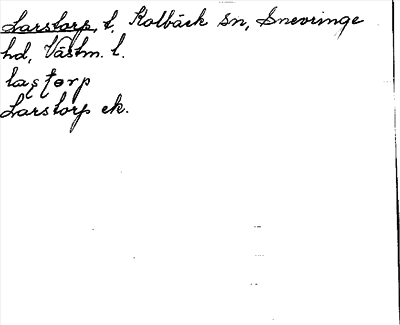 Larstorp, t. Kolbäck sn, Snevringe
hd, Västm. l.
Larstorp ek.